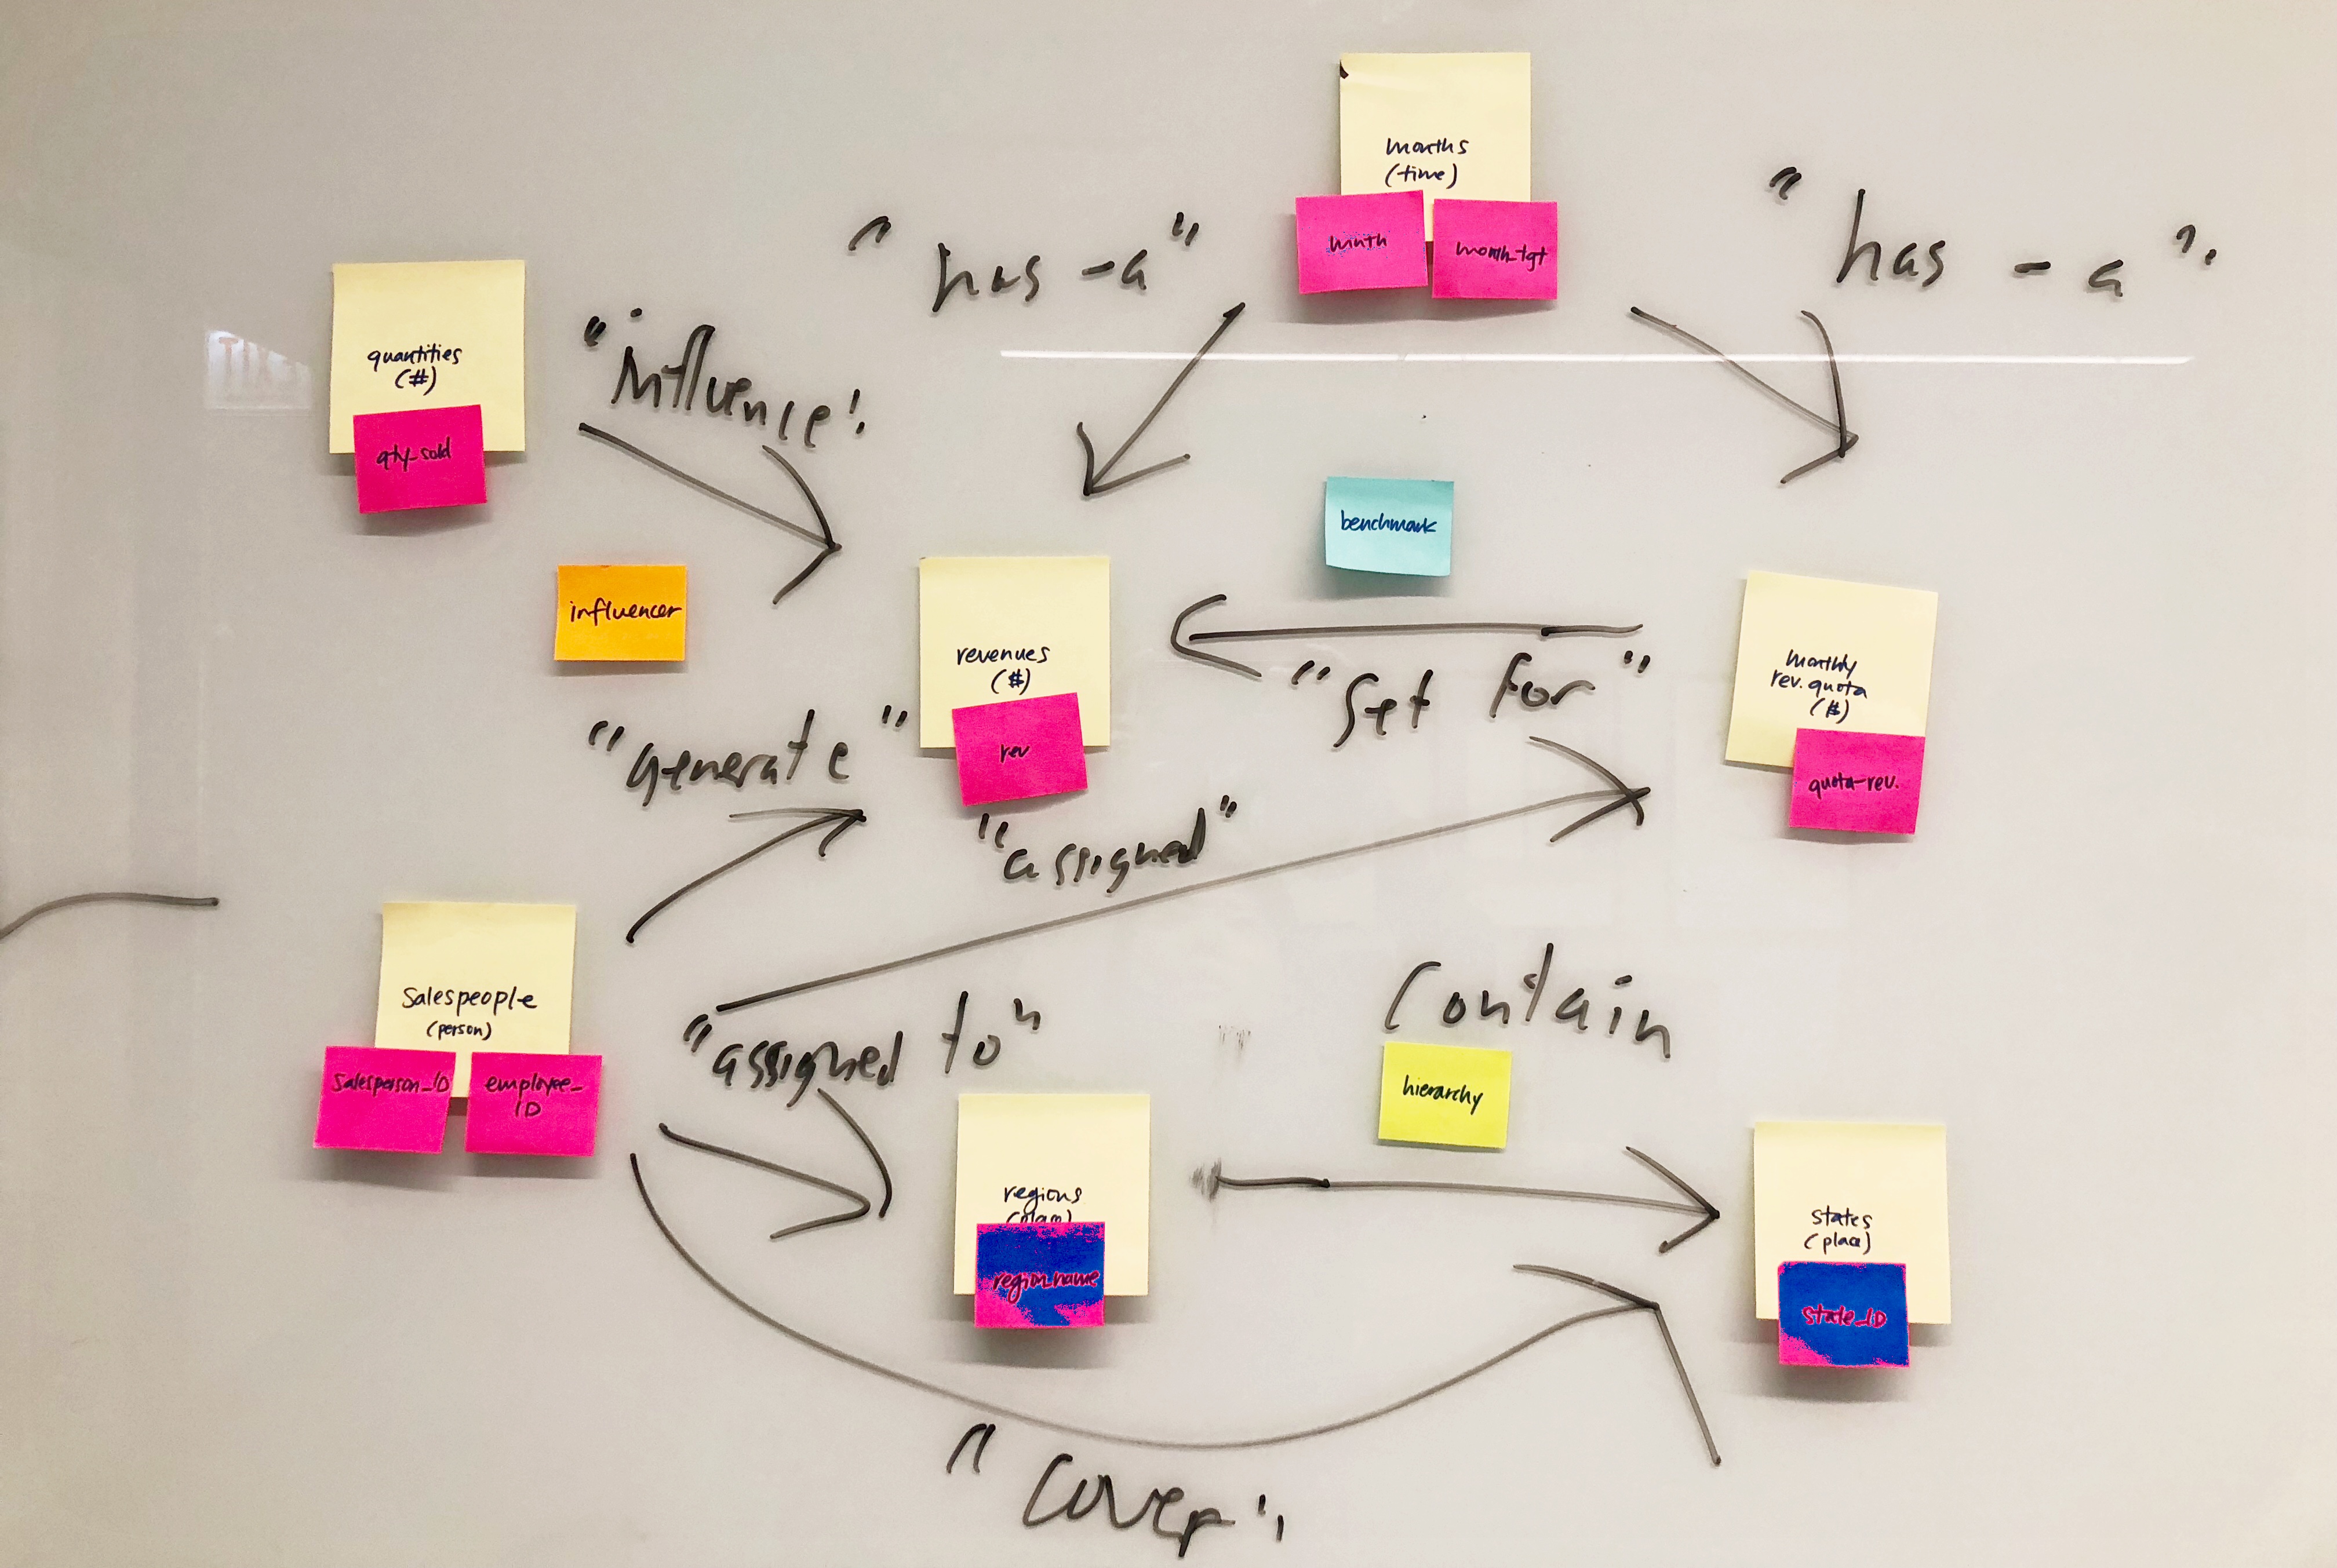 months
(time)
month
month_tgt
"has-a"
"has-a"
quantities
(#)
qty_sold
"influence"
influencer
benchmark
revenues
($)
rev
"set for"
monthly
rev. quota
($)
quota-rev.
"generate"
"assigned"
Salespeople
(person)
Salesperson_ID
employee_
ID
"assigned to"
contain
hierarchy
regions
(place)
region_name
states
(place)
state_ID
"cover"